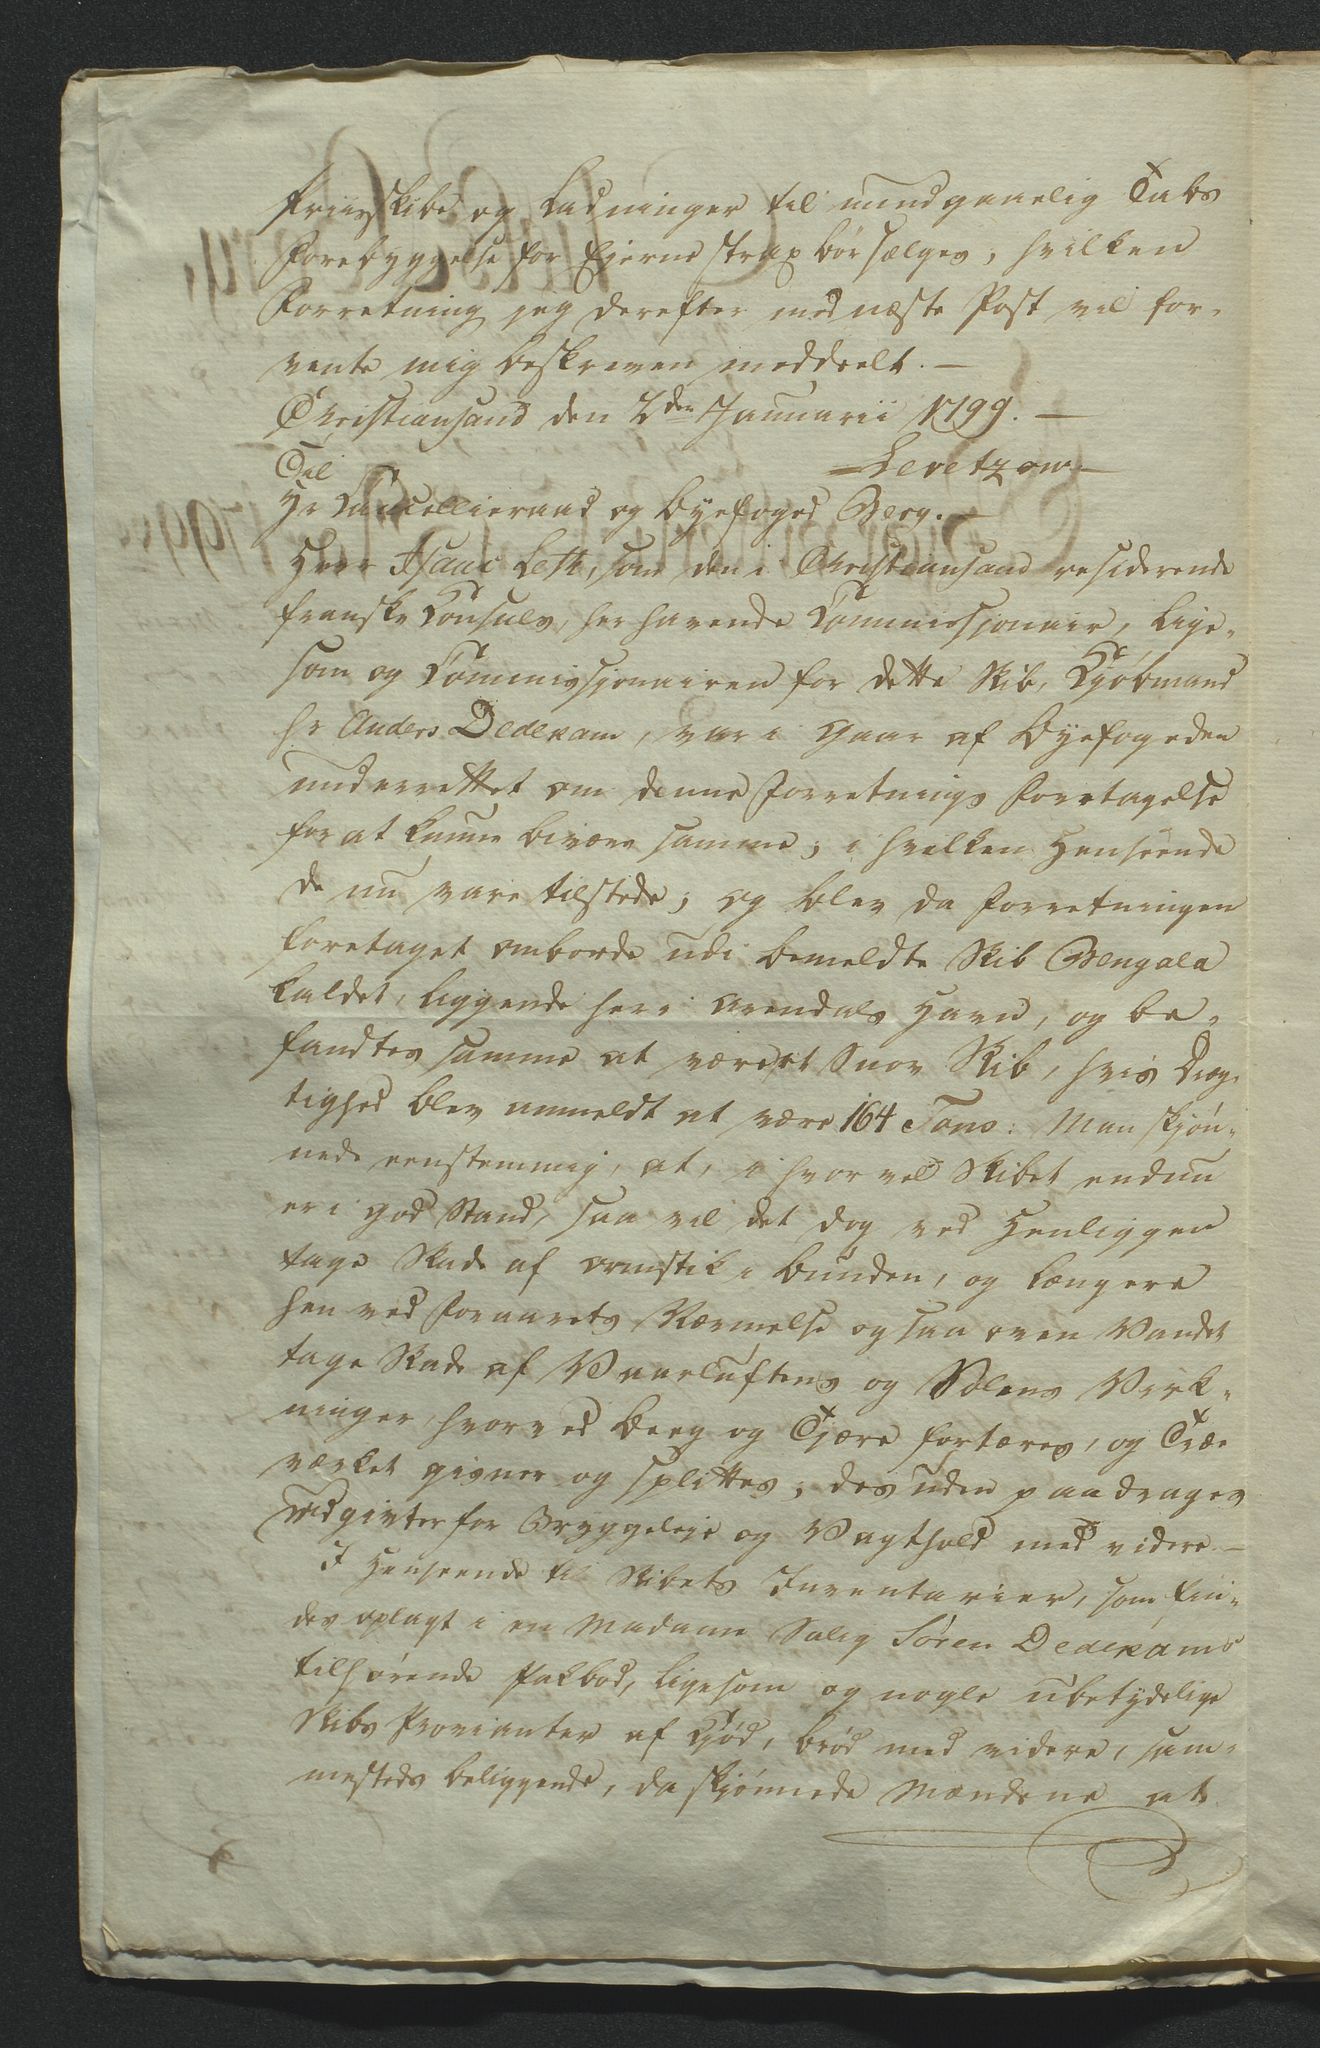 Priisskibe og Ladninger til uundgaaelig Tabs
Forebyggelse for Ejerne strax bør sælges, hvilken
Forretning jeg derefter med næste Post vil for-
vente mig beskreven meddeelt. —
Christiansand den 2den Januarii 1799. —
Til
— Levetzow —
Hr Cancellieraad og Byefoged Berg. —
Herr Isaac Leth, som den i Christiansand residerende
franske Consuls, her havende Commissionair, lige-
som og Commissionairen for dette Skib, Kjøbmand
Hr Anders Dedekam, var i Gaar af Byefogeden
underrettet om denne Forretnings Foretagelse
for at kunne bivære samme; i hvilken Henseende
de nu vare tilstede; og blev da Forretningen
foretaget omborde udi bemeldte Skib Bengala
kaldet, liggende her i Arendals Havn, og be-
fandtes samme at være et Snov Skib, hvis Dræg-
tighed blev anmeldt at være 164 Tons: Man skjøn-
nede eenstemmig, at, i hvor vel Skibet endnu
er i god Stand, saa vil det dog ved Henliggen
tage Skade af Ormstik i Bunden, og længere
hen ved Foraarets Varmelse ogsaa oven Vandet
tage Skade af Vaarluftens og Solens Virk-
ninger, hvorved Beeg og Tjære fortæres, og Træe
værket gisner og splittes; desuden paadrages
Udgivter for Bryggeleje og Vagthold med videre —
I Henseende til Skibets Inventarier, som fin-
des oplagt i en Madame Salig Søren Dedekams
tilhørende Pakbod, ligesom og nogle ubetydelige
Skibs Provianter af Kjød, Brød med videre, sam-
mesteds beliggende, da skjønnede Mændene at